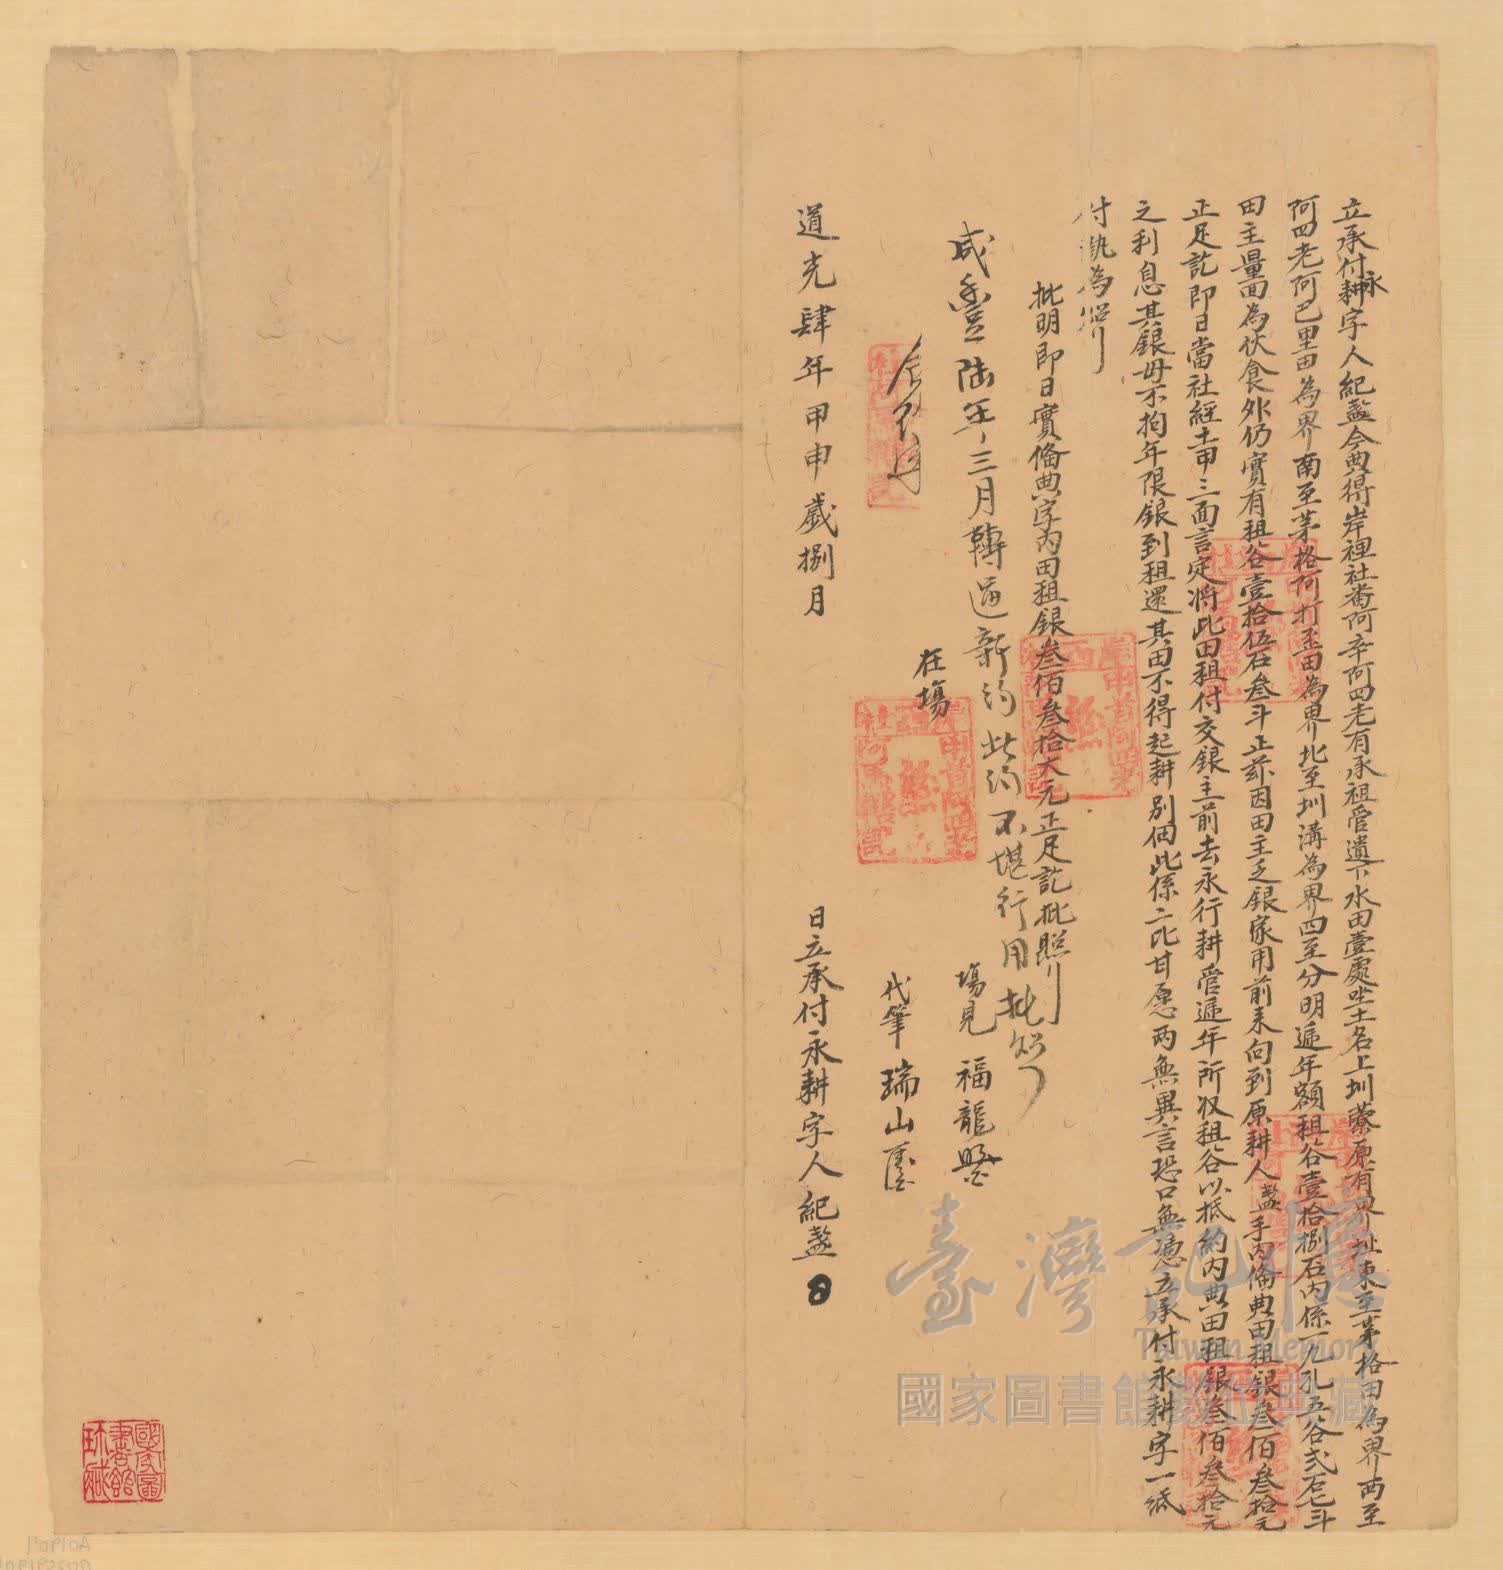 立承付永耕字人紀盞今典得岸裡社番阿卒阿四老有承祖管遺下水田壹處坐土名上圳藔原有界址東至茅格田為界西至
阿四老阿巴里田為界南至茅格阿打歪田為界北至圳溝為界四至分明遞年額租谷壹拾捌石內係一九孔五谷弍石七斗
田主量回為伙食外仍實有租谷壹拾伍石叁斗正茲因田主乏銀家用前來向到原耕人盞手內俻典田租銀叁佰叁拾元
正足訖即日當社經土甲三面言定將此田租付交銀主前去永行耕管遞年所收租谷以抵約內典田租銀叁佰叁拾元
之利息其銀母不拘年限銀到租還其田不得起耕別佃此係二比甘愿兩無異言恐口無憑立承付永耕字一紙
付執為炤
批明即日實俻典字內田租銀叁佰叁拾大元正足訖批照
咸豐陸年三月轉過新約此約不堪行用批炤
在場
場見 福龍
代筆 瑞山
道光肆年甲申歲捌月 日立承付永耕字人紀盞
臺灣記憶
Taiwan Memory
國家圖書館數位典藏
國家圖書館珍藏